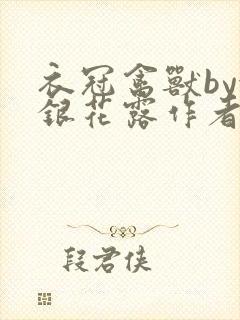 衣冠禽獸by
銀花露作者
段君侠